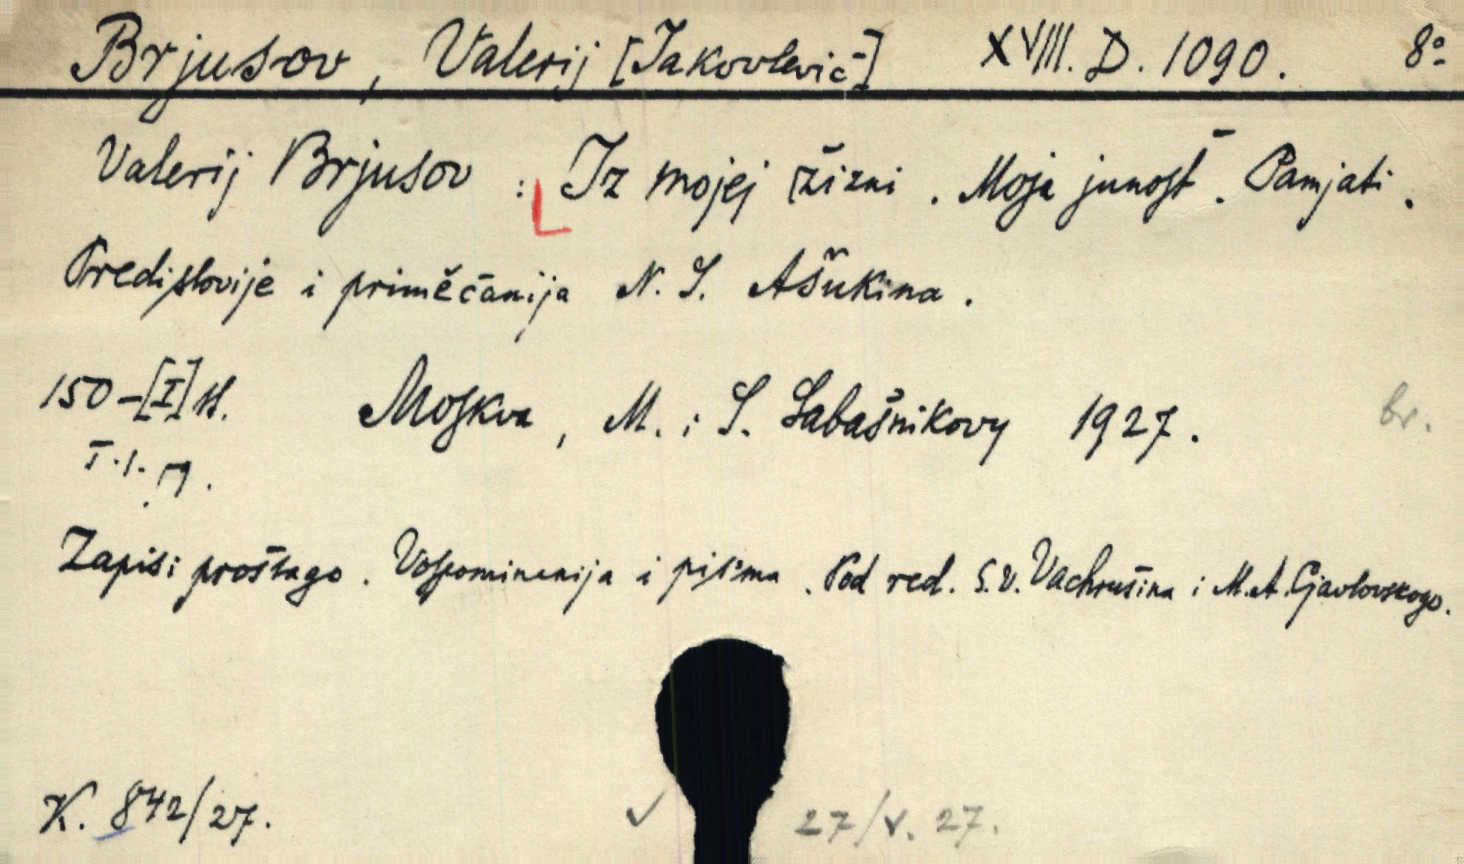 Brjusov, Valerij [Jakovlevič] XVIII. D. 1090. 8º
Valerij Brjusov : Iz mojej žizni. Moja junosť. Pamjati.
Predislovije i priměčanija N. S. Ašukina.
150-[I] st. Moskva, M. i S. Sabašnikovy 1927. br.
T. 1.
Zapisi prošlago. Vospominanija i piśma. Pod red. S. V. Vachrušina i M. A. Cjavlovskogo.
K. 842/27. ✓ 27/V. 27.